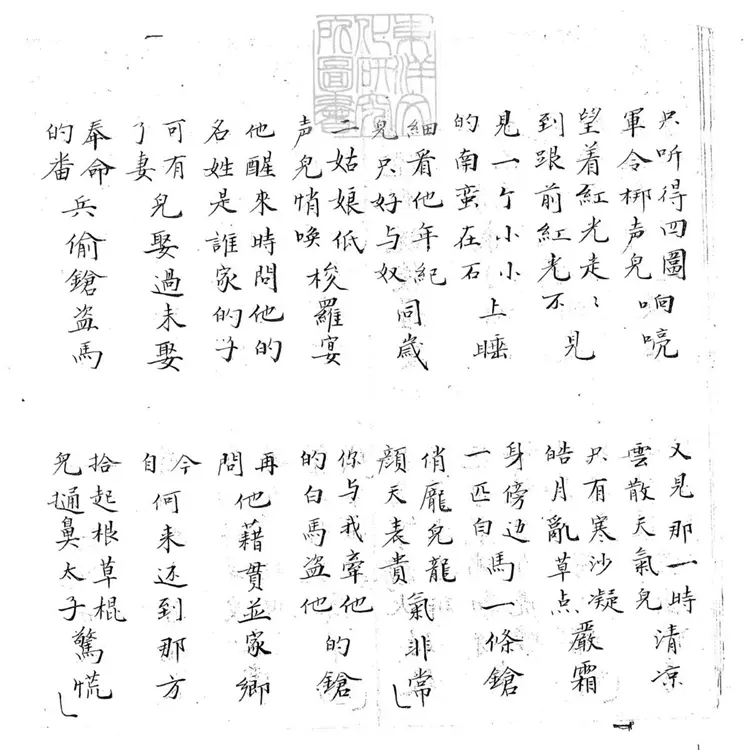 東洋文化研究所圖書
只听得四圖軍令梆声兒响喨
又見那一時雲散天氣兒清凉
望着紅光走〻到跟前紅光不見
只有寒沙凝皓月亂草点嚴霜
見一个小小的南蛮在石上睡
身傍边一匹白馬一條鎗
細看他年紀兒只好与奴同歲
俏龐兒龍顔天表貴氣非常
二姑娘低声兒悄喚梭羅宴
你与我牽他的白馬盗他的鎗
他醒來時問他的名姓是誰家的子
再問他藉貫並家鄉
可有了妻兒娶過未娶
今自何来还到那方
奉命的畨兵偷鎗盗馬
拾起根草棍兒通鼻太子驚慌